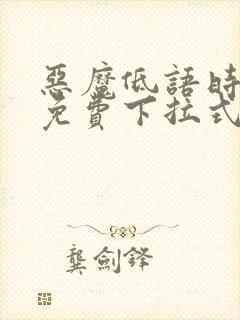 惡魔低語時
免費下拉式
龔劍鋒